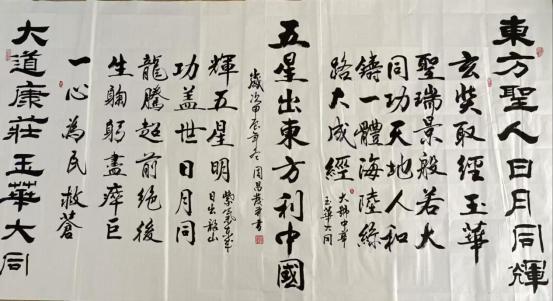 東方聖人日月同輝
玄奘取經玉華
聖瑞景般若大
同功天地人和
鑄一體海陸絲
路大成經
中華
玉華大同
五星出東方利中國
歲次甲辰年冬周昌書
輝五星明
紫氣東來
日出韶山
功蓋世日月同
龍騰超前絕後
生鞠躬盡瘁巨
一心為民救蒼
大道康莊玉華大同